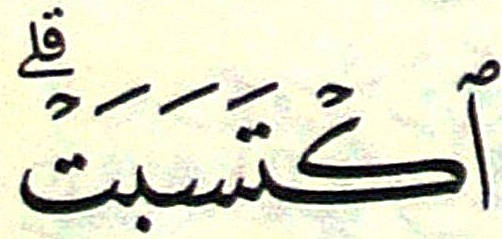 ٱكْتَسَبَتْۗ